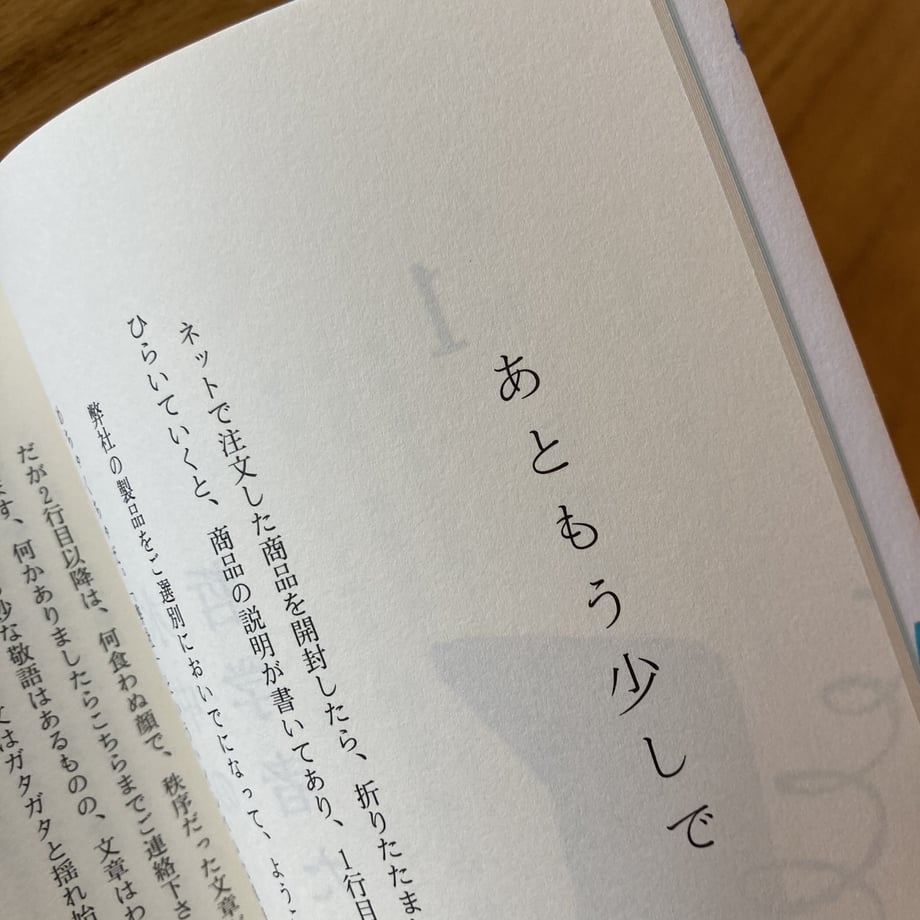 あともう少しで
ネットで注文した商品を開封したら、折りたたま
ひらいていくと、商品の説明が書いてあり、1行目
弊社の製品をご選別においでになって、ようこ
だが2行目以降は、何食わぬ顔で、秩序だった文章
ます、何かありましたらこちらまでご連絡下さ
妙な敬語はあるものの、文章はわ
はガタガタと揺れ始